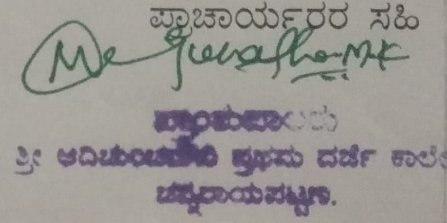 ಪ್ರಾಚಾರ್ಯರರ ಸಹಿ
ಪ್ರಾಂಶುಪಾಲರು
ಶ್ರೀ ಆದಿಚುಂಚನಗಿರಿ ಪ್ರಥಮ ದರ್ಜೆ ಕಾಲೇ
ಚನ್ನರಾಯಪಟ್ಟಣ.